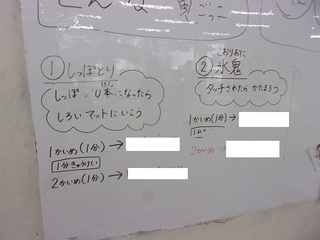 鬼ごっこ
① しっぽとり
しっぽ 0本になったら
しろいマットにいこう
1かいめ(1分)→
1分きゅうけい
2かいめ(1分)→
② こおりおに
氷鬼
タッチされたら かたまろう
1かいめ(1分)→
2かいめ →